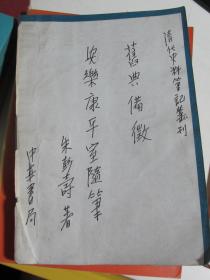 清代史料筆記叢刊
舊典備徵
安樂康平室隨筆
朱彭壽著
中華書局